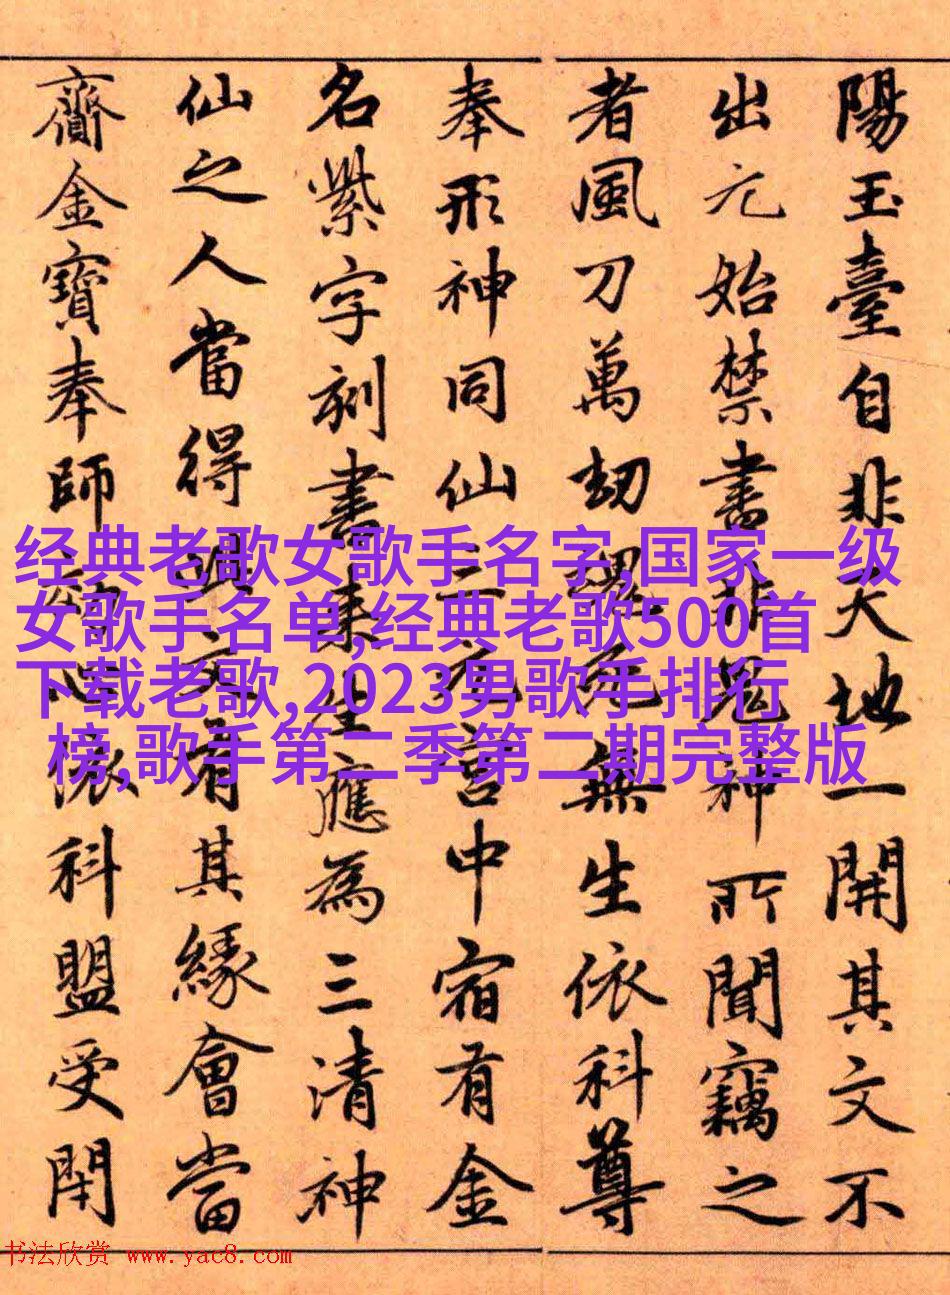 陽玉臺自非天地一開其文不
出元始禁書非鬼神所聞竊之
者風刀萬劫無生依科尊
奉形神同仙三元宮中宿有金
名紫字刻書来生應為三清神
仙之人當得此文有其緣會當
齎金寶奉師依科盟受閇
经典老歌女歌手名字,国家一级
女歌手名单,经典老歌500首
下载老歌,2023男歌手排行
榜,歌手第二季第二期完整版
书法欣赏 www.yac8.com